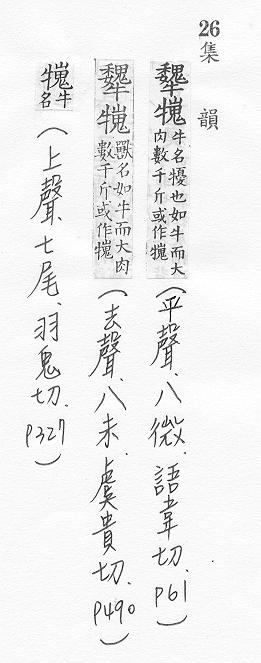 26集韻
犩犪牛名犪也如牛而大肉數千斤或作犪(平聲、八微、語韋切、P61)
犩犪獸名如牛而大肉數千斤或作犪(去聲、八未、虞貴切、P490)
犪牛名(上聲、七尾、羽鬼切、P327)